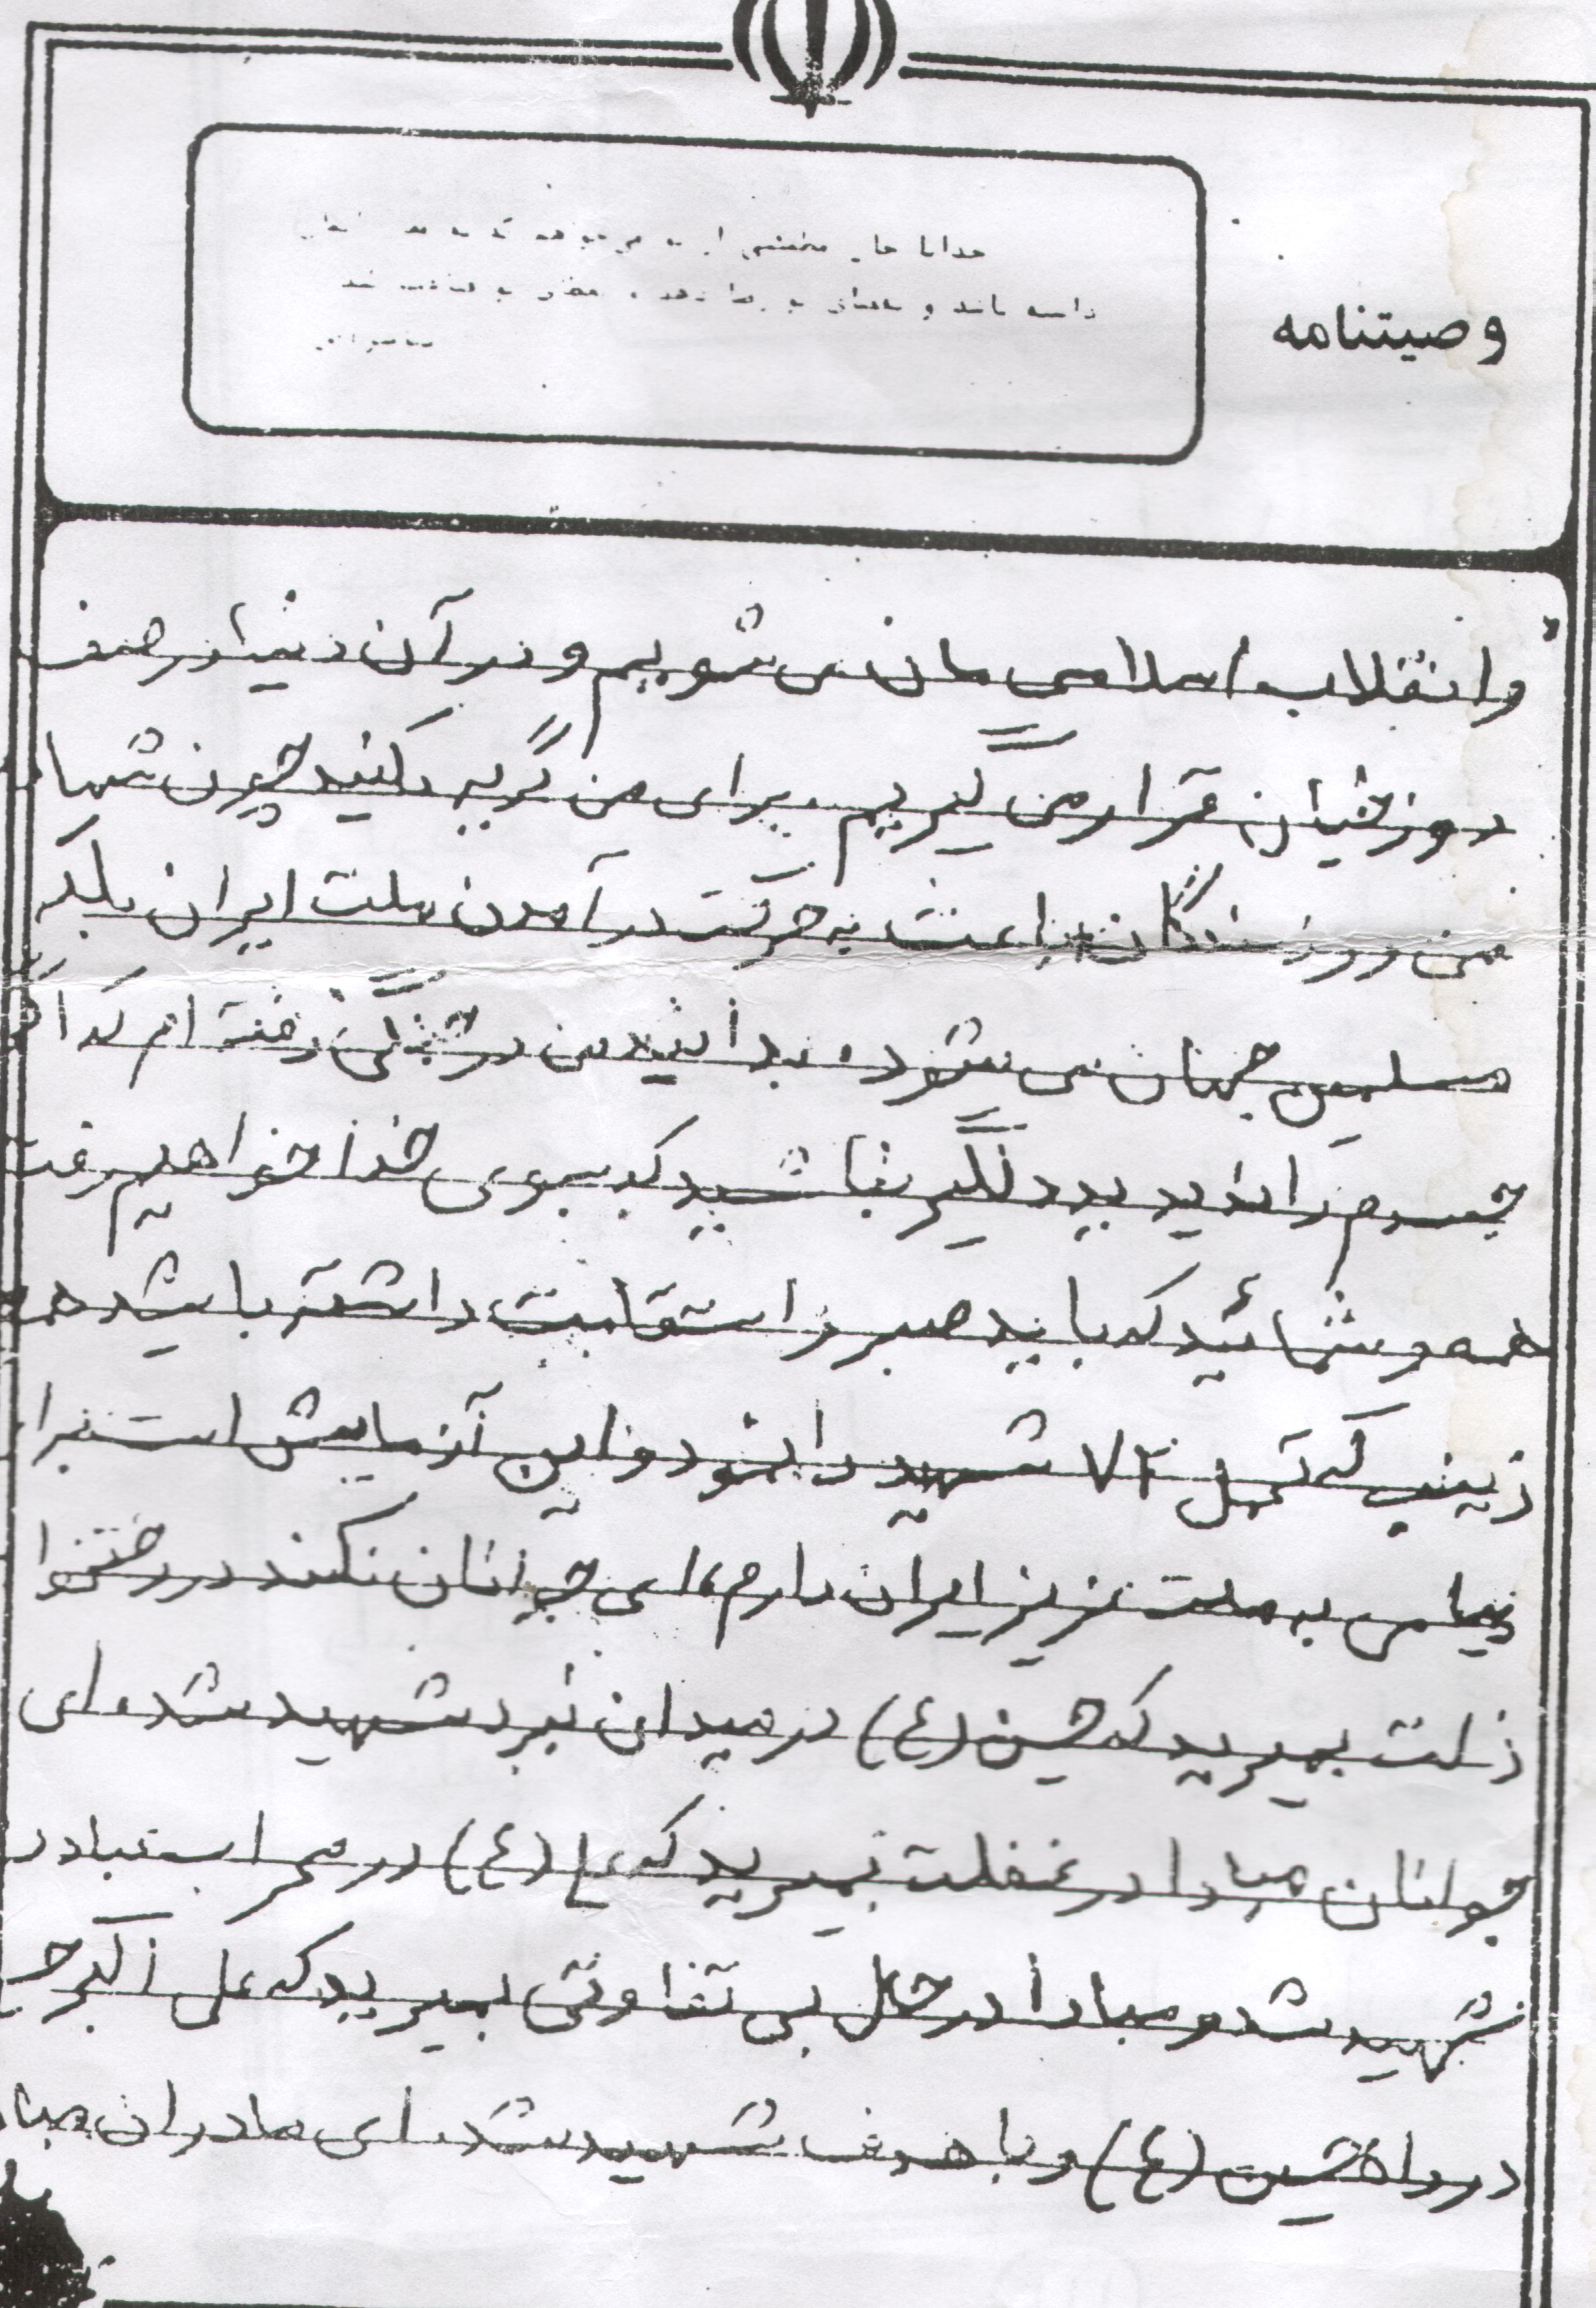 وصیتنامه
و انقلاب اسلامی مان می شویم و در آن دنیا در صف
دوزخیان قرار می گیریم. برای من گریه نکنید چون شما
من و رزمندگان باعث به حرکت در آمدن ملت ایران بلکه
مسلمین جهان می شود، بدانید من در جنگی رفته ام که اگر
جسدم را ندیدید دلگیر نباشید که بسوی خدا خواهیم رفت
همه و شمائید که باید صبر و استقامت داشته باشید همه
زینب که تحمل ۷۲ شهید را نمود و این آزمایش است برا
پیامی به ملت عزیز ایران دارم، ای جوانان نکند در رختخوا
ذلت بمیرید که حسین (ع) در میدان نبرد شهید شد، ای
جوانان مبادا در غفلت بمیرید که علی (ع) در محراب عبادت
شهید شد و مبادا در حال بی تفاوتی بمیرید که علی اکبر ح
در راه حسین (ع) و با هدف شهید شد، ای مادران مبا